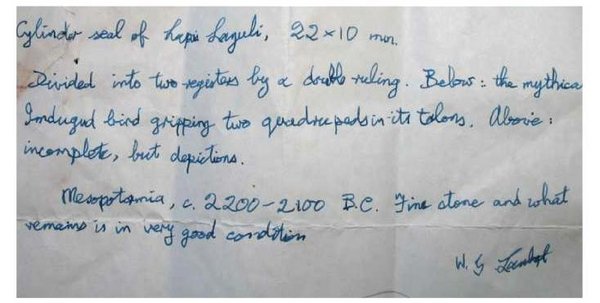 Cylinder seal of Lapis Lazuli, 22 × 10 mm.
Divided into two registers by a double ruling. Below: the mythica
Imdugud bird gripping two quadrupeds in its talons. Above:
incomplete, but depictions.
Mesopotamia, c. 2200-2100 B.C. Fine stone and what
remains is in very good condition
W. G Lambert